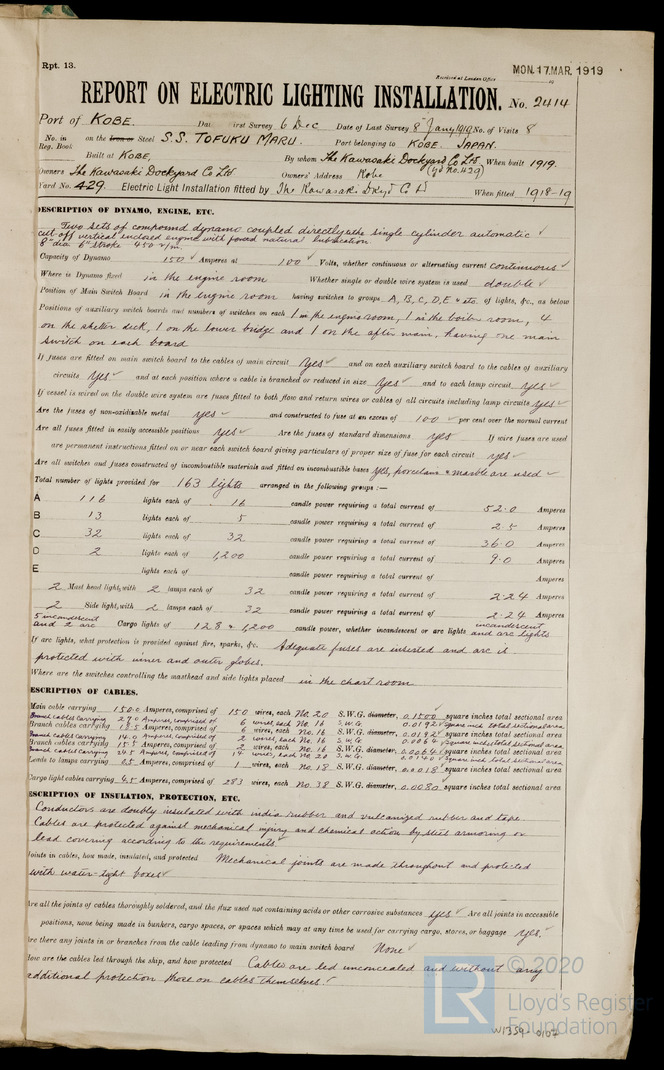 Rpt. 13.
Received at London Office
MON. 17 MAR. 1919
REPORT ON ELECTRIC LIGHTING INSTALLATION. No. 2414
Port of KOBE. Dat irst Survey 6 Dec Date of Last Survey 8 Jany 1919 No. of Visits 8
No. in Reg. Book on the Iron or Steel S.S. TOFUKU MARU. Port belonging to KOBE JAPAN.
Built at KOBE, By whom The Kawasaki Dockyard Co Ltd (yd No. 429) When built 1919.
Owners The Kawasaki Dockyard Co Ltd Owners' Address Kobe
Yard No. 429. Electric Light Installation fitted by The Kawasaki Dkyd Co Ld When fitted 1918-19
DESCRIPTION OF DYNAMO, ENGINE, ETC.
Two sets of compound dynamo coupled directly with single cylinder automatic
cut off vertical enclosed engine with forced natural lubrication
8" dia 6" stroke 450 r/m.
Capacity of Dynamo 150 Amperes at 100 Volts, whether continuous or alternating current continuous
Where is Dynamo fixed in the engine room Whether single or double wire system is used double
Position of Main Switch Board in the engine room having switches to groups A, B, C, D, E & etc. of lights, &c., as below
Positions of auxiliary switch boards and numbers of switches on each 1 in the engine room, 1 in the boiler room, 4
on the shelter deck, 1 on the lower bridge and 1 on the after main, having one main
switch on each board
If fuses are fitted on main switch board to the cables of main circuit yes and on each auxiliary switch board to the cables of auxiliary
circuits yes and at each position where a cable is branched or reduced in size yes and to each lamp circuit yes
If vessel is wired on the double wire system are fuses fitted to both flow and return wires or cables of all circuits including lamp circuits yes
Are the fuses of non-oxidisable metal yes and constructed to fuse at an excess of 100 per cent over the normal current
Are all fuses fitted in easily accessible positions yes Are the fuses of standard dimensions yes If wire fuses are used
are permanent instructions fitted on or near each switch board giving particulars of proper size of fuse for each circuit yes
Are all switches and fuses constructed of incombustible materials and fitted on incombustible bases yes, porcelain & marble are used
Total number of lights provided for 163 lights arranged in the following groups :—
A 116 lights each of 16 candle power requiring a total current of 52.0 Amperes
B 13 lights each of 5 candle power requiring a total current of 2.5 Amperes
C 32 lights each of 32 candle power requiring a total current of 36.0 Amperes
D 2 lights each of 1,200 candle power requiring a total current of 9.0 Amperes
E lights each of candle power requiring a total current of Amperes
2 Mast head light, with 2 lamps each of 32 candle power requiring a total current of 2.24 Amperes
2 Side light, with 2 lamps each of 32 candle power requiring a total current of 2.24 Amperes
5 incandescent and 2 arc Cargo lights of 128 & 1,200 candle power, whether incandescent or arc lights incandescent and arc lights
If arc lights, what protection is provided against fire, sparks, &c. Adequate fuses are inserted and arc is
protected with inner and outer globes.
Where are the switches controlling the masthead and side lights placed in the chart room
ESCRIPTION OF CABLES.
Main cable carrying 150.0 Amperes, comprised of 150 wires, each No. 20 S.W.G. diameter, 0.1500 square inches total sectional area
Branch cables carrying 29.0 Amperes, comprised of 6 wires, each No. 16 S.W.G. 0.0192 square inch total sectional area
Branch cables carrying 18.5 Amperes, comprised of 6 wires, each No. 16 S.W.G. diameter, 0.0192 square inches total sectional area
Branch cables carrying 14.0 Amperes, comprised of 2 wires, each No. 16 S.W.G. 0.0064 square inch total sectional area
Branch cables carrying 15.5 Amperes, comprised of 2 wires, each No. 16 S.W.G. diameter, 0.0064 square inches total sectional area
Branch cables carrying 24.5 Amperes, comprised of 14 wires, each No. 20 S.W.G. 0.0140 square inch total sectional area
Leads to lamps carrying 0.5 Amperes, comprised of 1 wires, each No. 18 S.W.G. diameter, 0.0018 square inches total sectional area
Cargo light cables carrying 4.5 Amperes, comprised of 283 wires, each No. 38 S.W.G. diameter, 0.0080 square inches total sectional area
ESCRIPTION OF INSULATION, PROTECTION, ETC.
Conductors are doubly insulated with india rubber and vulcanized rubber and tape.
Cables are protected against mechanical injury and chemical action by steel armoring or
lead covering according to the requirements.
Joints in cables, how made, insulated, and protected Mechanical joints are made throughout and protected
with water-tight boxes
Are all the joints of cables thoroughly soldered, and the flux used not containing acids or other corrosive substances yes Are all joints in accessible
positions, none being made in bunkers, cargo spaces, or spaces which may at any time be used for carrying cargo, stores, or baggage yes.
Are there any joints in or branches from the cable leading from dynamo to main switch board None
How are the cables led through the ship, and how protected Cables are led unconcealed and without any
additional protection those on cables themselves.
© 2020
LR Lloyd's Register
Foundation
W1359-0107